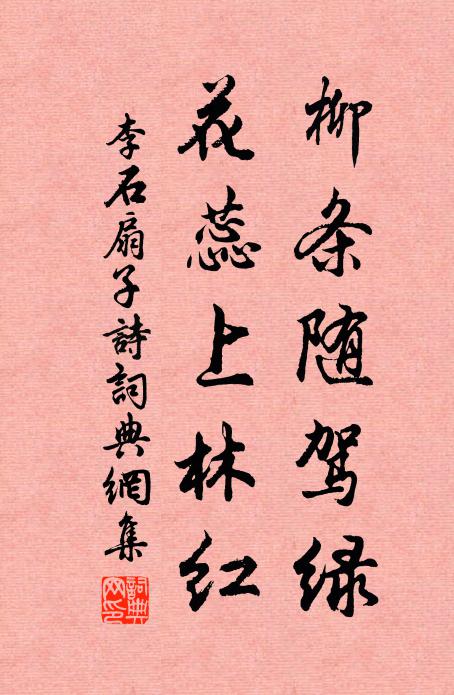 柳条随驾绿
花蕊上林红
李石扇子詩詞典網集
詞典網印